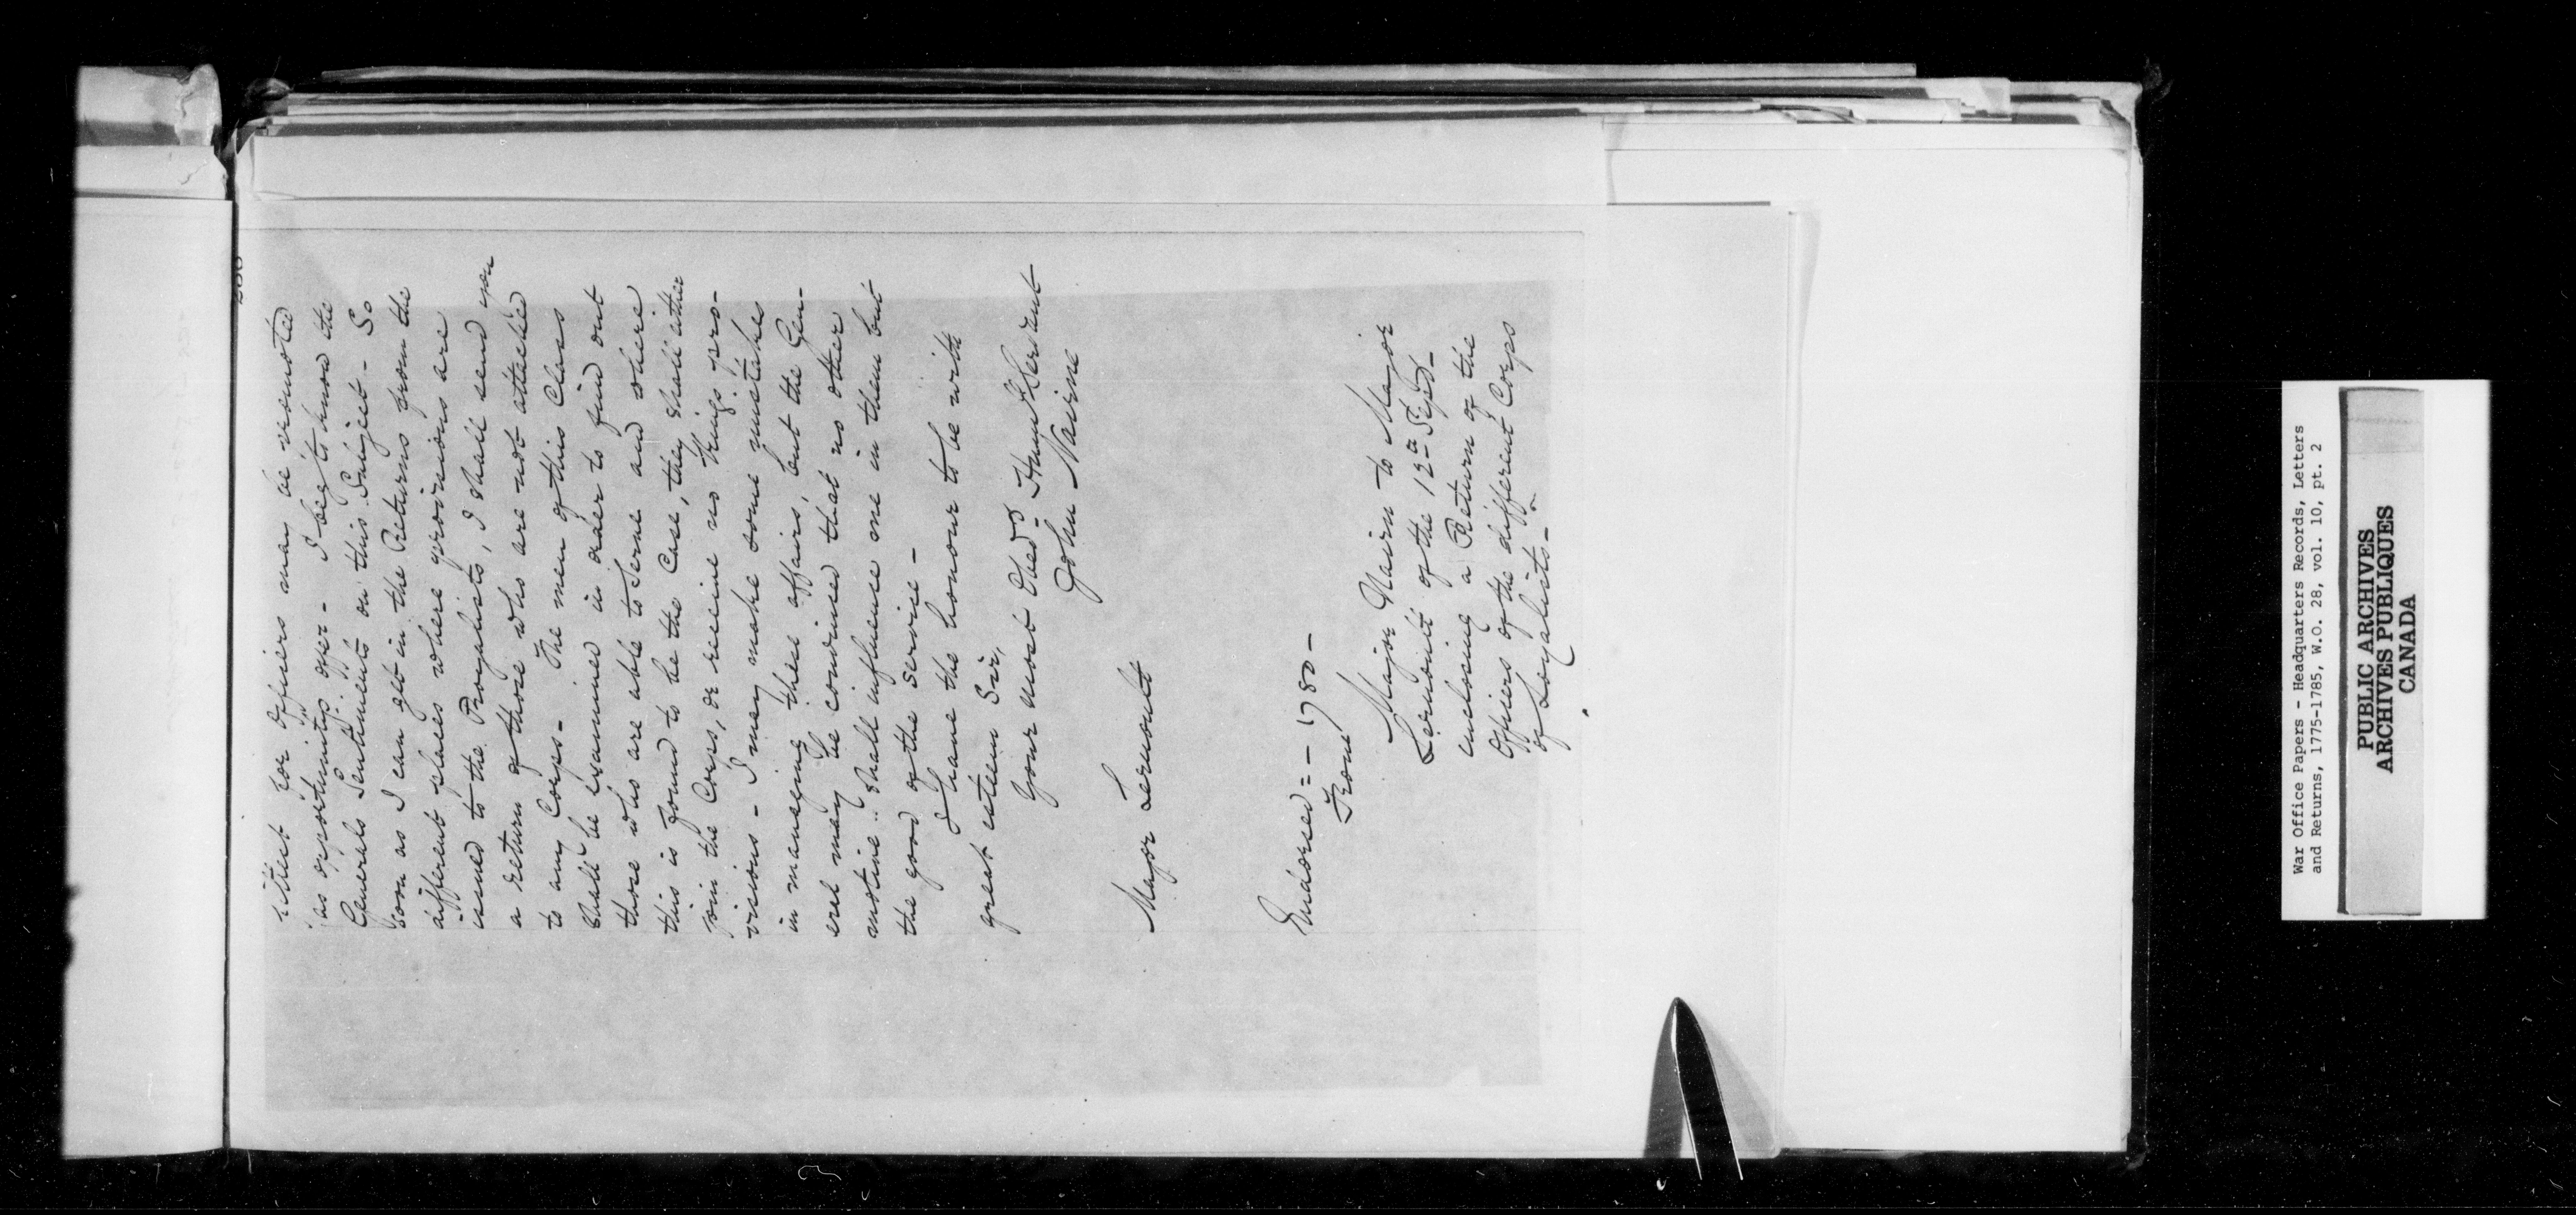 for Officers may be promoted
as opportunitys offer - I beg to know the
Generals Sentiments on this Subject - So
soon as I can get in the Returns from the
different places where provisions are
issued to the Royalists, I shall send you
a return of those who are not attached
to any Corps - The men of this Class
shall be examined in order to find out
those who are able to Serve and where
this is found to be the Case, they shall either
join the Corps, or receive no things pro-
visions - I may make some mistakes
in managing these affairs, but the Gen-
eral may be convinced that no other
motive shall influence one in them but
the good of the service -
I have the honour to be with
great esteem Sir,
Your most Obed. Humb Servant
John Nairne
Major Lernoult
Endorsed = - 1780 -
From
Major Nairn to Major
Lernoult of the 12th Sept -
enclosing a Return of the
Officers of the different Corps
of Loyalists -
War Office Papers - Headquarters Records, Letters
and Returns, 1775-1785, W.O. 28, vol. 10, pt. 2
PUBLIC ARCHIVES
ARCHIVES PUBLIQUES
CANADA